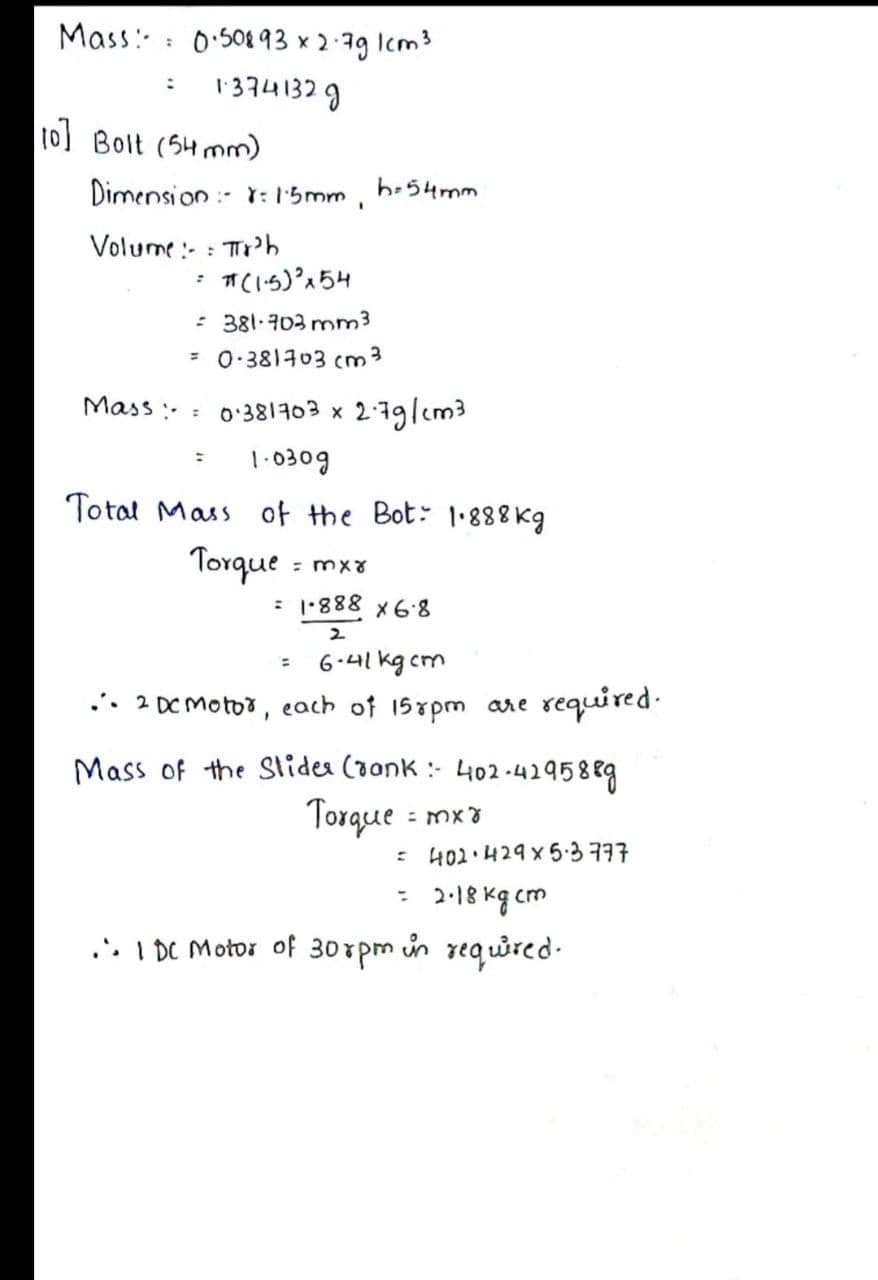 Mass:- : 0.50893 x 2.7g/cm³
= 1.374132 g
10] Bolt (54 mm)
Dimension :- r= 1.5mm, h=54mm
Volume :- = πr²h
= π(1.5)²x54
= 381.703 mm³
= 0.381703 cm³
Mass :- = 0.381703 x 2.7g/cm³
= 1.030g
Total Mass of the Bot:- 1.888Kg
Torque = mxr
= 1.888/2 x6.8
= 6.41 kg cm
∴ 2 DC Motor, each of 15rpm are required.
Mass of the Slider Crank :- 402.429588g
Torque = mxr
= 402.429 x 5.3777
= 2.18 kg cm
∴ 1 DC Motor of 30rpm in required.